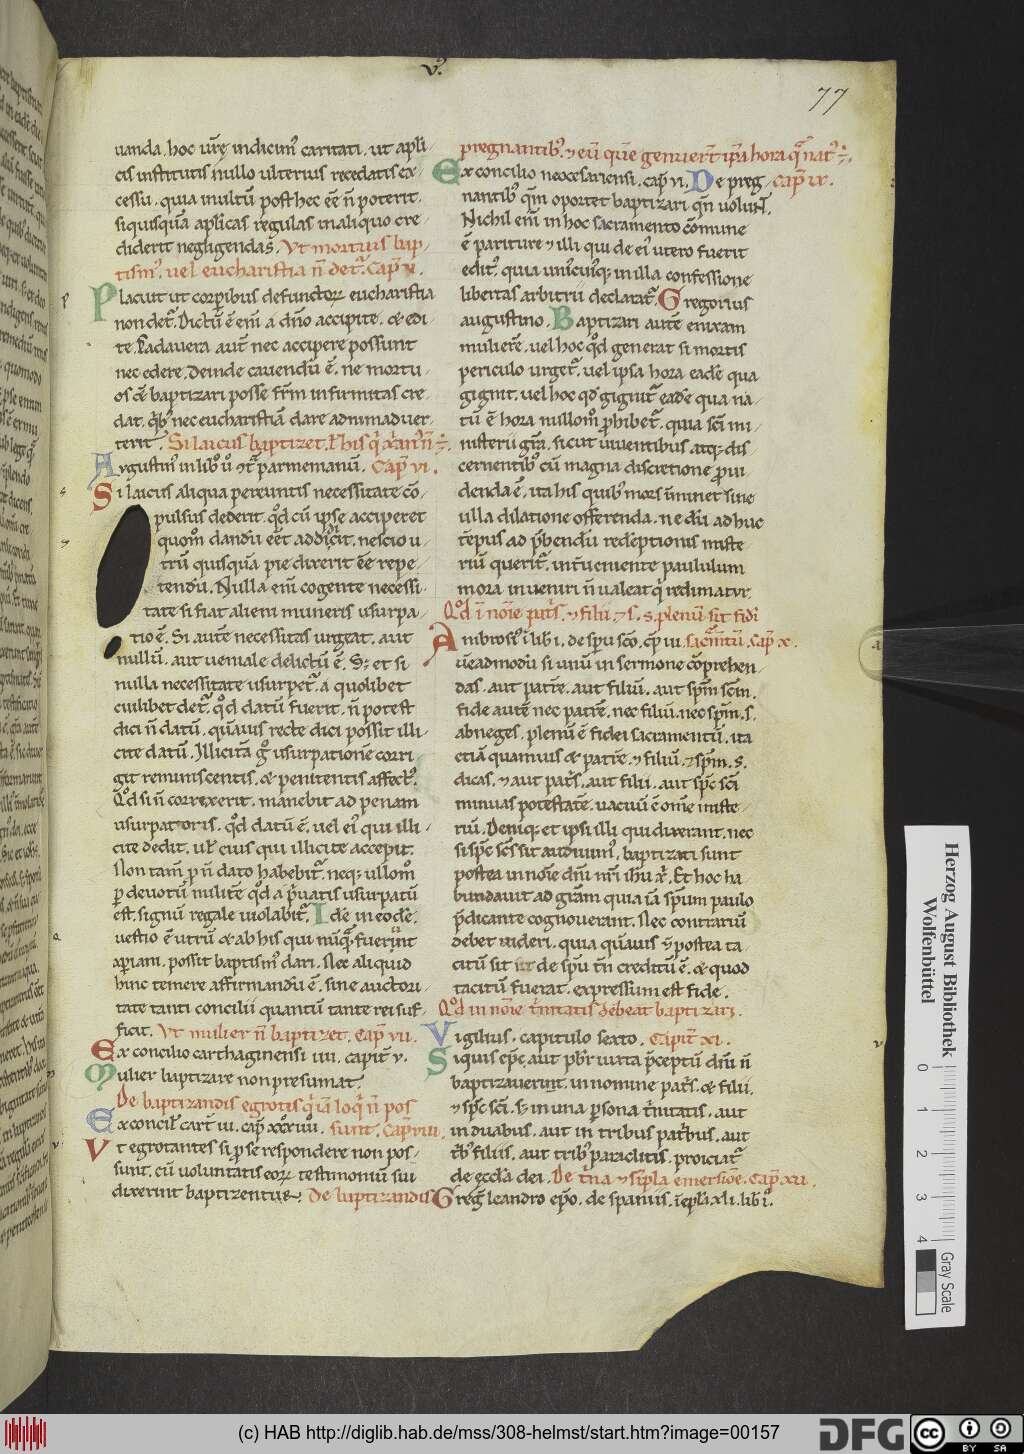 v.
77
uanda. hoc uirę indicim' caritati. ut apli-
cis institutis nullo ulterius recedatis ex-
cessu. quia multū post hec eē n̄ poterit.
siquisquā aplicas regulas inaliquo cre-
diderit negligendas. Vt mortuis bap-
tism'. uel eucharistia n̄ det'. Cap̄ v.
Placuit ut corporibus defunctoꝝ eucharistia
non det'. Dictū ē eni a dn̄o accipite. & edi-
te. Cadauera aut̄ nec accipere possunt
nec edere. Deinde cauendū ē. ne mortu-
os &ē baptizari posse frm̄ infirmitas cre-
dat. qb' nec eucharistiā dare adnimaduer-
terit. Si laicus baptizet. 
Augustin' in lib' u' 9t̄ parmemanū. Cap̄ vi.
Si laicus aliqua pereuntis necessitate cō-
pulsus dederit. qd̄ cū ipse acciperet
quom̄ dandū eēt addidicit. nescio u-
trū quisquā pie dixerit eē repe-
tendū. Nulla eni cogente necessi-
tate si fiat alieni muneris usurpa-
tio ē. Si autē necessitas urgeat. aut
nullū. aut ueniale delictū ē. S; et si
nulla necessitate usurpet'. a quolibet
cuilibet det'. qd̄ datū fuerit. n̄ potest
dici n̄ datū. quāuis recte dici possit illi-
cite datū. Illicitā g° usurpationē corri-
git reminiscentis. & penitentis affect'.
Qd̄ si n̄ correxerit. manebit ad penam
usurpatoris. qd̄ datū ē. uel ei' qui illi-
cite dedit. ul' eius qui illicite accepit.
Non tam̄ p n̄ dato habebit'. neq; ullom°
p deuotū militē qd̄ a p'uatis usurpatū
est. signū regale uiolabit'. Idē in eodē.
uestio ē utrū & ab his qui nūq̄ fuerunt
xp̄iani. possit baptism' dari. Nec aliquid
hinc temere affirmandū ē. sine auctori-
tate tanti concilii quantū tante rei suf-
ficit. Vt mulier n̄ baptizet. Cap̄ vii.
Ex concilio carthaginensi iiii. capit' v.
Mulier baptizare non presumat.
De baptizandis egrotis q' iā loq' n̄ pos
Ex concil' cart' iii. cap̄ xxxiiii. sunt. Cap̄ viii.
Vt egrotantes si p se respondere non pos-
sunt. cū uoluntatis eoꝝ testimoniū sui
dixerint baptizentur. De baptizandis
pregnantib'. & eū quē genuert̄ ipa hora q̄ nat'
Ex concilio neocesariensi. cap̄ vi. De preg- Cap̄ ix.
nantib' qm̄ oportet baptizari qn̄ uolunt.
Nichil eni in hoc sacramento cōmune
ē pariture & illi qui de ei' utero fuerit
edit'. quia unicuiq; in illa confessione
libertas arbitrii declarat'. Gregorius
augustino. Baptizari autē enixam
mulierē. uel hoc qd̄ generat si mortis
periculo urget'. uel ipsa hora eadē qua
gignit. uel hoc qd̄ gignit' eadē qua na-
tū ē hora nullom° phibet'. quia sc̄i mi-
nisterii gr̄a. sicut uiuentibus atq; dis-
cernentib' cū magna discretione p̄ui-
denda ē. ita his quib' mors iminet sine
ulla dilatione offerenda. ne dū adhuc
tēpus ad p̄bendū redēptionis miste-
riū querit'. interueniente paululum
mora inueniri n̄ ualeat q' redimatur.
Qd̄ ī noīe pat's. & filii & s. s. plenū sit fidī
Ambros' ī lib i. de spū sc̄o. cap̄ vi. sacm̄tū. Cap̄ x.
uēadmodū si unū in sermone cōprehen-
das. aut patrē. aut filiū. aut spm̄ sc̄m.
fide autē nec patrē. nec filiū. nec spm̄. s.
abneges. plenū ē fidei sacramentū. ita
etiā quamuis & patrē. & filiū. & spm̄. s.
dicas. & aut pat's. aut filii. aut spc̄ sc̄i
minuas potestatē. uacuū ē om̄e miste-
riū. Deniq; et ipsi illi qui dixerant. nec
si spc̄ sc̄s sit audiuim'. baptizati sunt
postea in noīe dn̄i nr̄i ihu xp̄i. Et hoc ha-
bundauit ad gr̄am quia iā spm̄ paulo
p̄dicante cognouerant. Nec contrariū
debet uideri. quia quāuis & postea ta-
citū sit de spū tn̄ creditū ē. & quod
tacitū fuerat. expressum est fide.
Qd̄ in noīe trinitatis debeat baptizari.
Vigilius. capitulo sexto. Capit' xi.
Siquis epc̄. aut pbr iuxta p̄ceptū dn̄i n̄
baptizauerint. in nomine pat's. & filii.
& spc̄ sc̄i. s; in una psona trinitatis. aut
in duabus. aut in tribus patribus. aut
trib' filiis. aut trib' paraclitis. proiciat'
de eccl̄a dei. De trina & simpla emersiōe. Cap̄ xii.
Greg' leandro epo. de spaniis. ī epl̄a. xli. lib i.
Herzog August Bibliothek
Wolfenbüttel
0 1 2 3 4
Gray Scale
(c) HAB http://diglib.hab.de/mss/308-helmst/start.htm?image=00157
DFG
cc BY SA